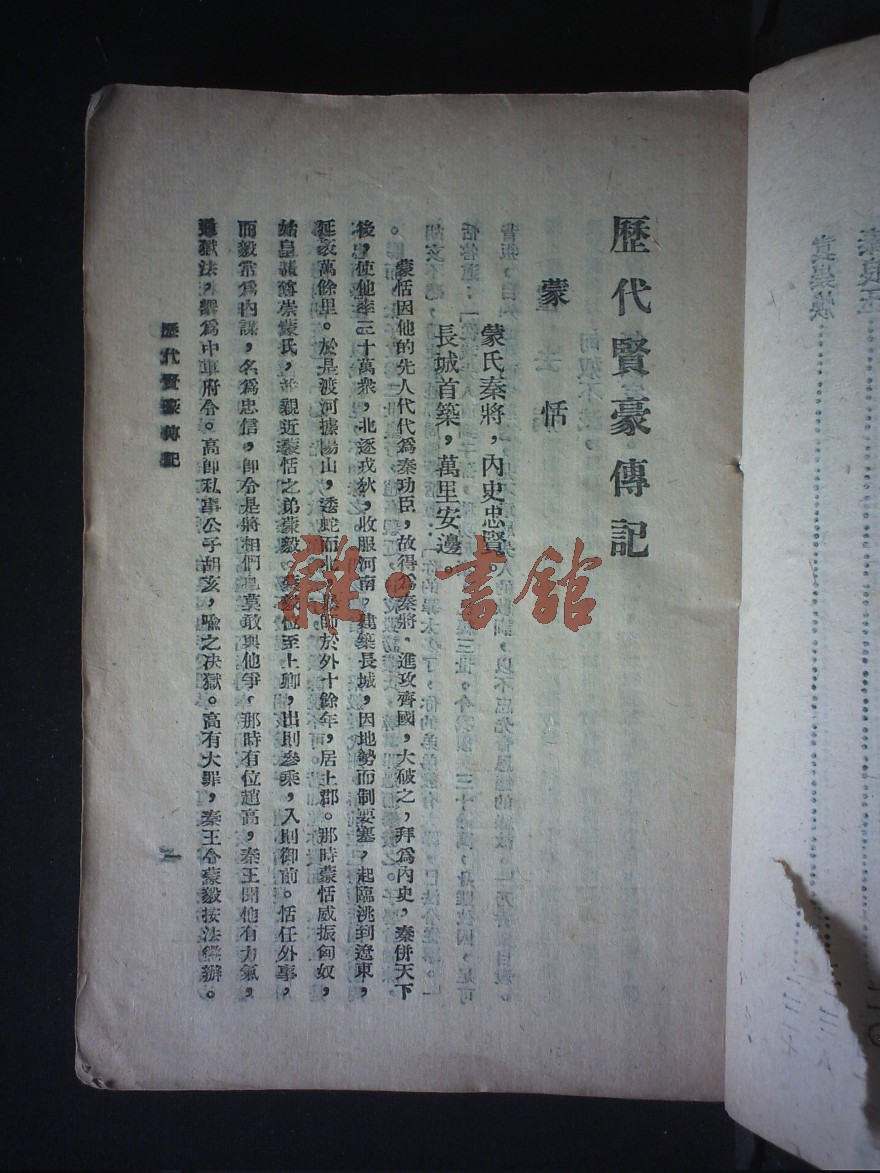 歷代賢豪傳記
蒙恬
蒙氏秦將，內史忠賢。
長城首築，萬里安邊。
蒙恬因他的先人代代爲秦功臣，故得爲秦將，進攻齊國，大破之，拜爲內史，秦併天下
後，使他率三十萬衆，北逐戎狄，收服河南，建築長城，因地勢而制要塞，起臨洮到遼東，
延袤萬餘里。於是渡河據陽山，逶蛇而北，暴師於外十餘年，居上郡。那時蒙恬威振匈奴，
始皇甚尊崇蒙氏，並親近蒙恬之弟蒙毅。蒙毅位至上卿，出則參乘，入則御前。恬任外事，
而毅常爲內謀，名爲忠信，卽令是將相們也莫敢與他爭，那時有位趙高，秦王聞他有力氣，
通獄法，舉爲中車府令。高卽私事公子胡亥，喻之决獄。高有大罪，秦王令蒙毅按法懲辦。
歷代賢豪傳記
一
雜·書館